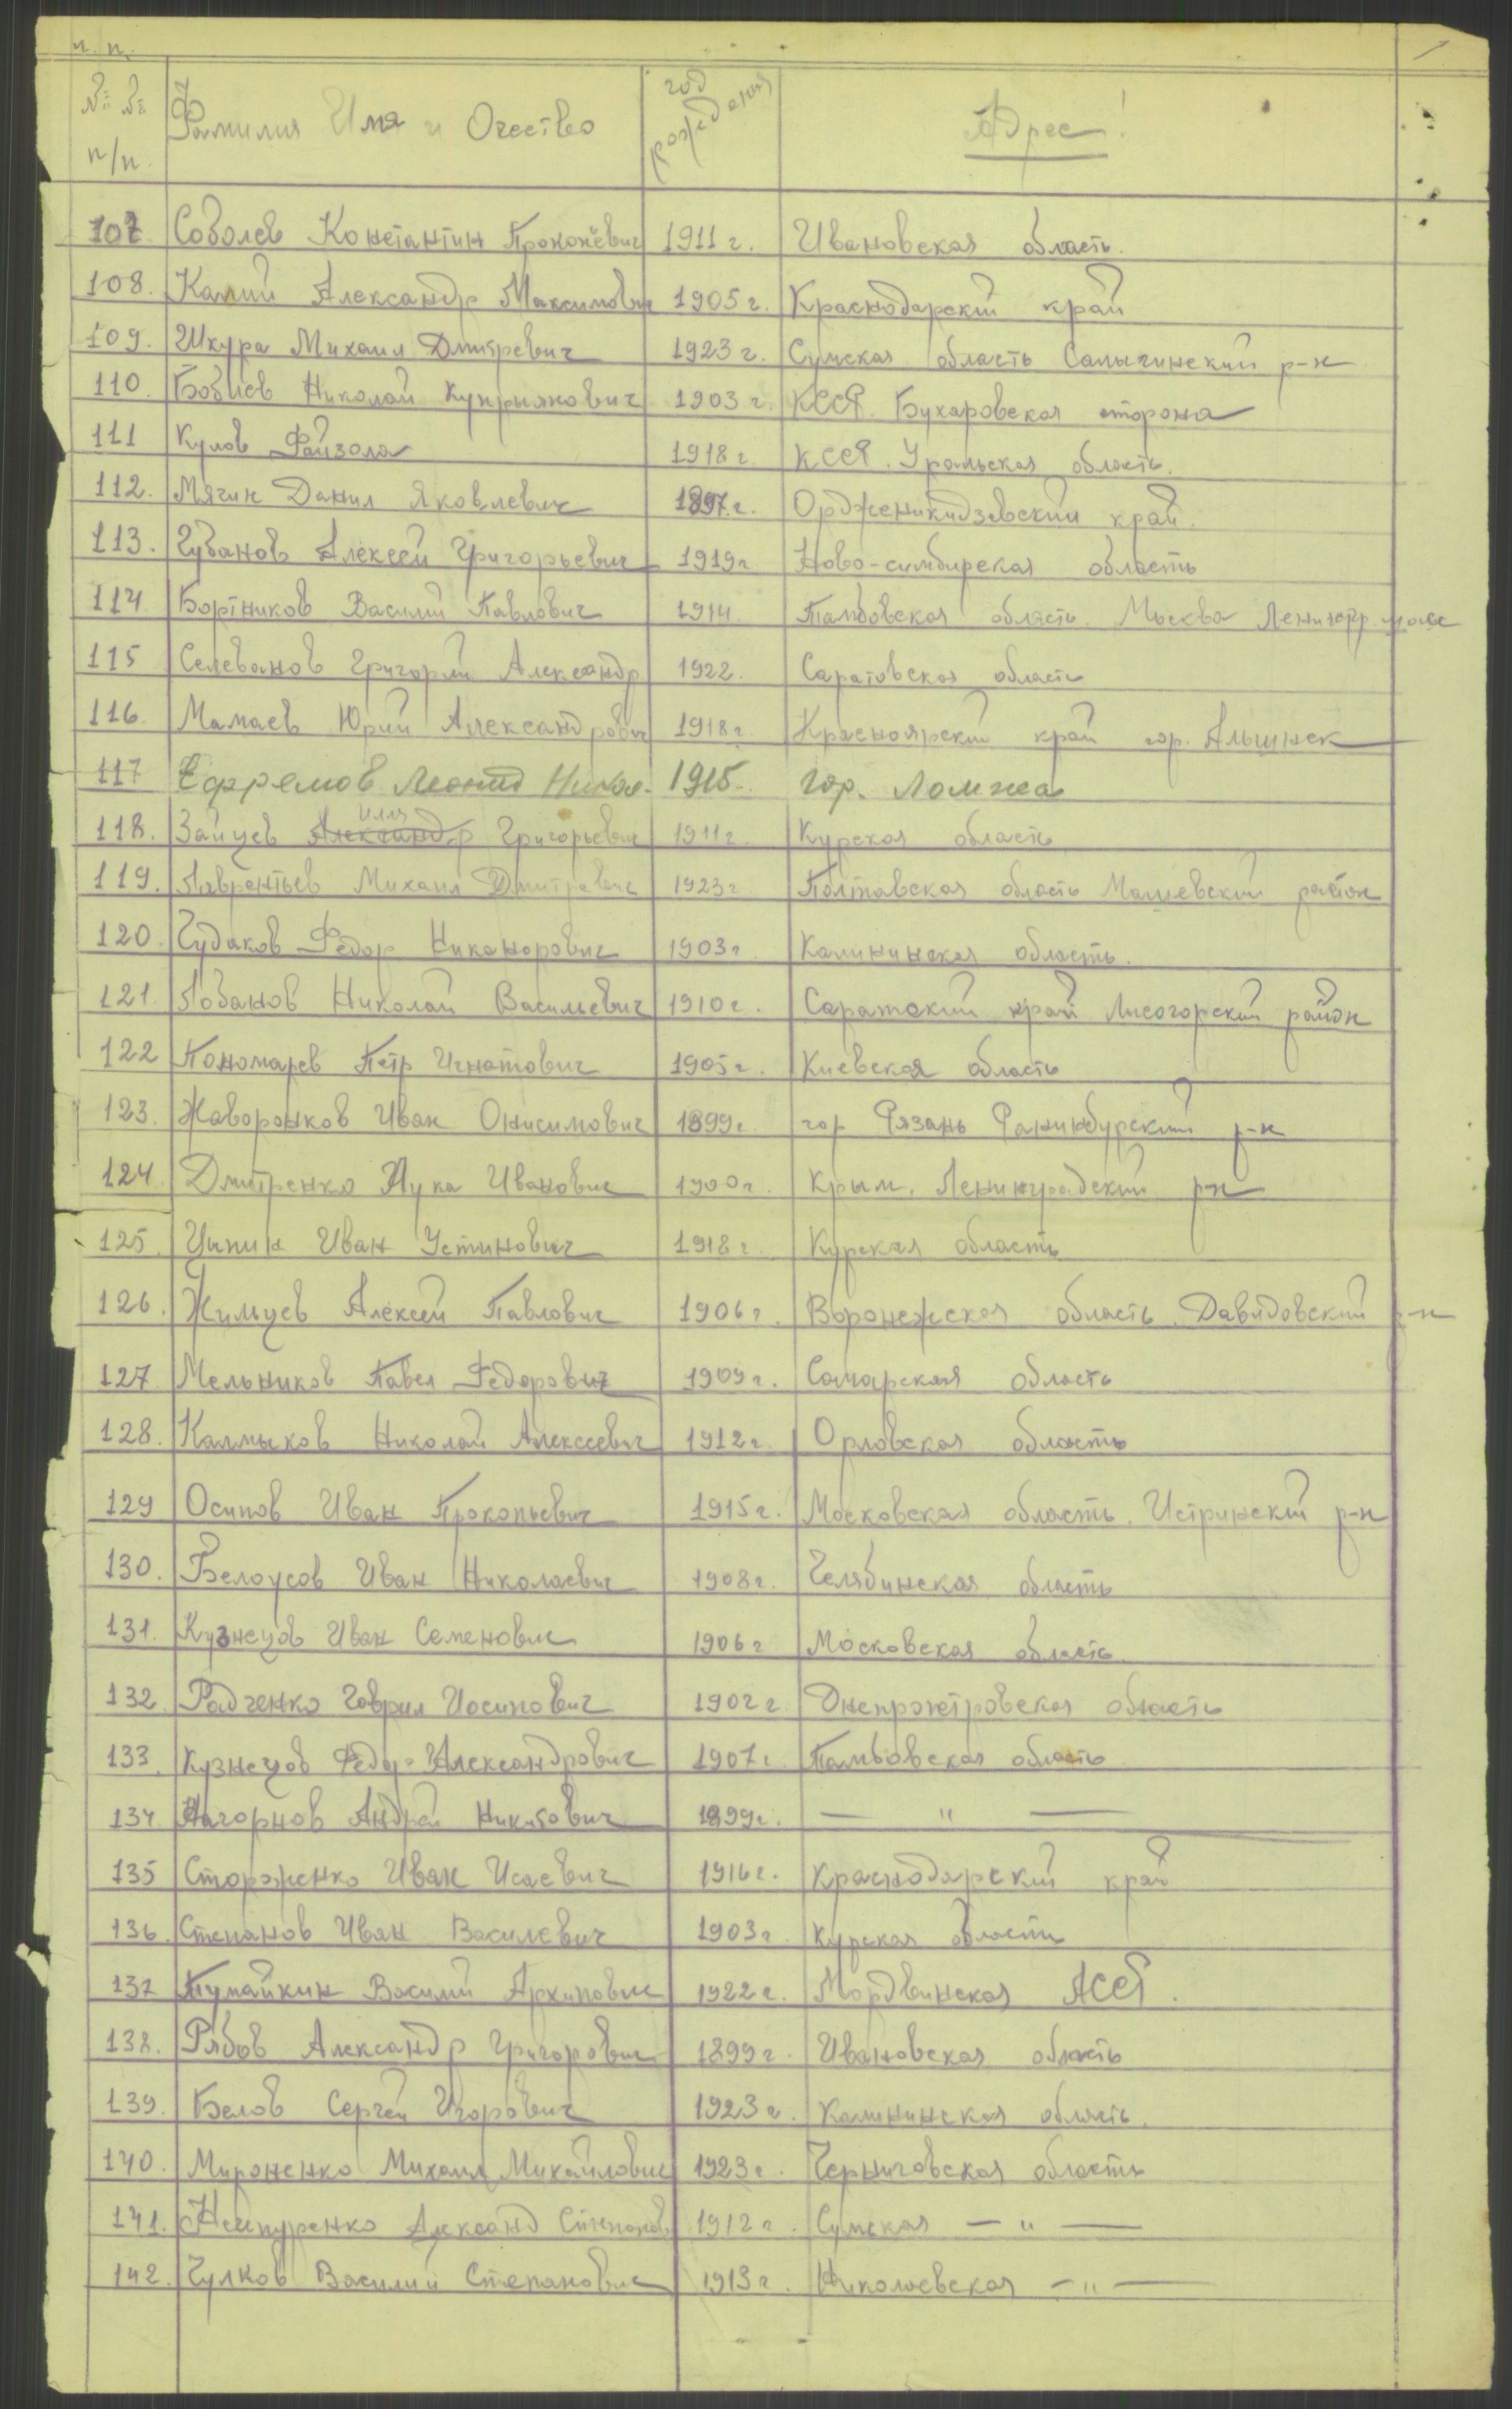 п. п.
№ № п/п. Фамилия Имя и Отчество год рождения Адрес!
107 Соболев Константин Прокопёвич 1911 г. Ивановская область.
108. Калий Александр Максимович 1905 г. Краснодарский край
109. Шкура Михаил Дмитревич 1923 г. Сумская область Самычинский р-н
110. Бобиев Николай Куприянович 1903 г. КССР. Бухаровская сторона
111 Кулов Файзола 1918 г. КССР. Уральская область.
112. Мягин Данил Яковлевич 1897 г. Орджоникидзевский край.
113. Губанов Алексей Григорьевич 1919 г Ново-симбирская область
114 Бортников Василий Павлович 1914. Тамбовская область. Москва Ленингр. шосе
115 Селеванов Григорий Александр 1922. Саратовская область
116. Мамаев Юрий Александрович 1918 г. Красноярский край гор. Альщнск
117 Ефремов Леонид Никол. 1915. гор. Ломжа
118. Зайцев Александр Илля Григорьевич 1911 г. Курская область
119. Лаврентьев Михаил Дмитревич 1923 г Полтавская область Машевский район
120. Чудаков Федор Никанорович 1903 г. Калининская область.
121. Лобанов Николай Васильевич 1910 г. Саратский край Лисогорский район
122 Пономарев Петр Игнатович 1905 г. Киевская область
123. Жаворонков Иван Онисимович 1899 г. гор Рязань Раниибурский р-н
124. Дмитренко Лука Иванович 1900 г. Крым. Ленинградский р-н
125. Цыпин Иван Устинович 1918 г. Курская область
126. Жильцев Алексей Павлович 1906 г. Воронежская область Давидовский р-н
127. Мельников Павел Федорович 1909 г. Самарская область
128. Калмыков Николай Алексеевич 1912 г. Орловская область
129 Осипов Иван Прокопьевич 1915 г. Московская область. Истринский р-н
130. Белоусов Иван Николаевич 1908 г. Челябинская область
131. Кузнецов Иван Семенович 1906 г Московская область.
132. Радченко Гаврил Иосипович 1902 г. Днепропетровская область
133. Кузнецов Федор Александрович 1907 г. Тамбовская область.
134. Нагорнов Андрей Никитович 1899 г. — " —
135 Стороженко Иван Исаевич 1916 г. Краснодарский край
136. Степанов Иван Василевич 1903 г. Курская область
137 Тумайкин Василий Архипович 1922 г. Мордвинская АССР.
138. Рябов Александр Григорович 1899 г. Ивановская область
139. Белов Сергей Игорович 1923 г. Калининская область.
140. Мироненко Михаил Михайлович 1923 г. Черниговская область
141. Нешпуренко Александ Степанов 1912 г. Сумская — " —
142. Чулков Василий Степанович 1913 г. Николаевская — " —